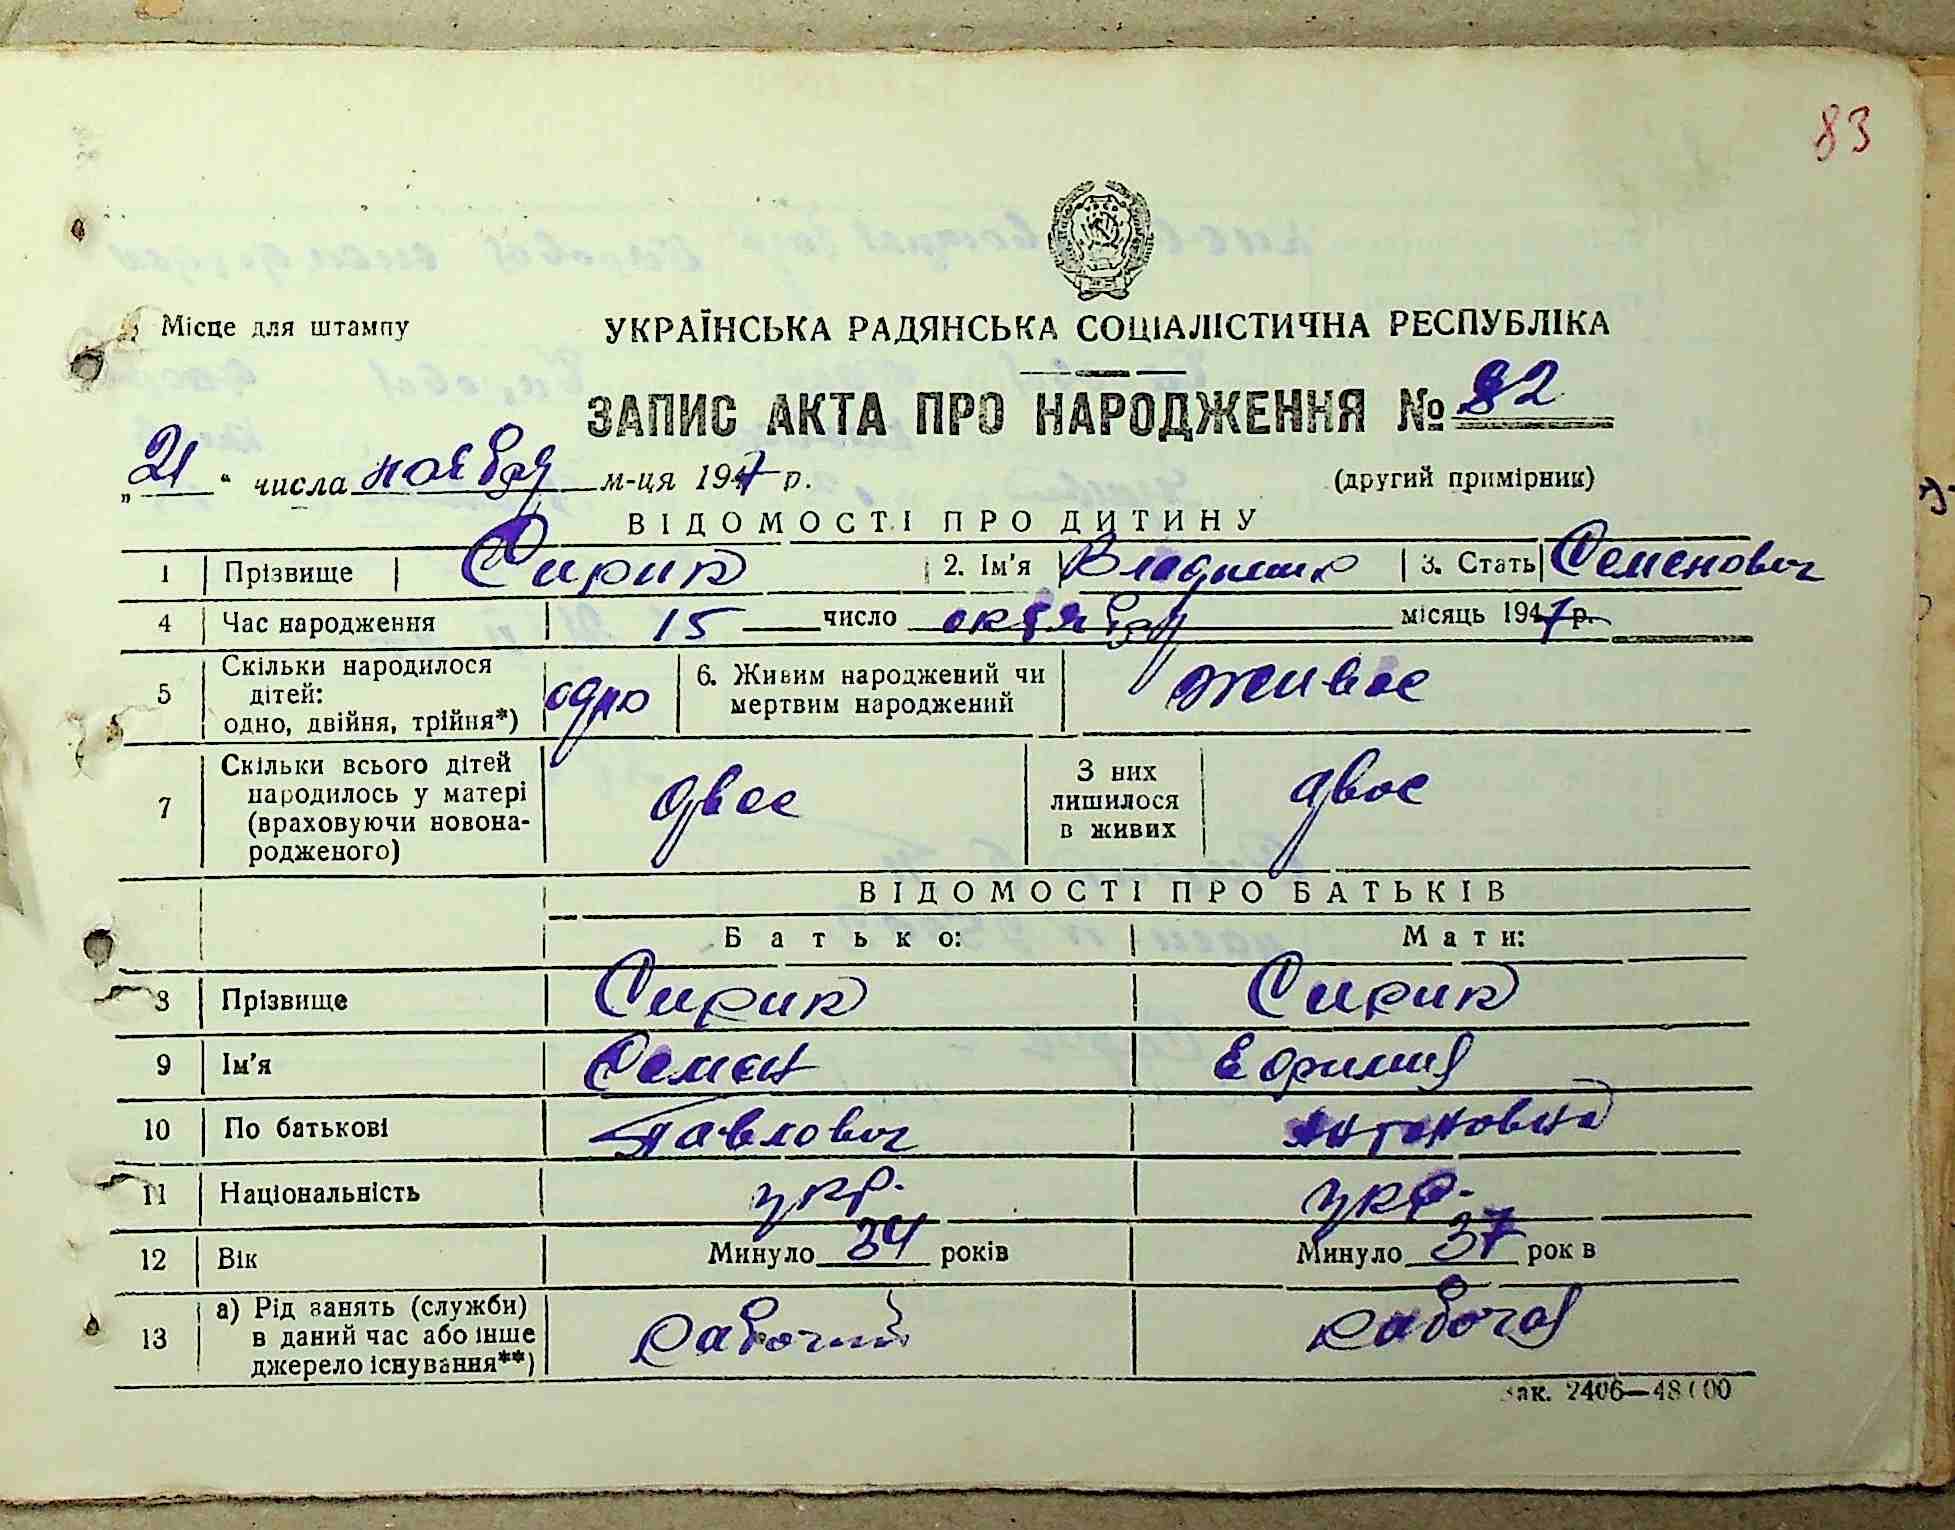 83
Місце для штампу
УКРАЇНСЬКА РАДЯНСЬКА СОЦІАЛІСТИЧНА РЕСПУБЛІКА
ЗАПИС АКТА ПРО НАРОДЖЕННЯ № 82
„21“ числа ноября м-ця 1947 р. (другий примірник)
ВІДОМОСТІ ПРО ДИТИНУ
1 Прізвище Сирик 2. Ім'я Владимир 3. Стать Семенович
4 Час народження 15 число октября місяць 1947 р.
5 Скільки народилося дітей: одно, двійня, трійня*) одно 6. Живим народжений чи мертвим народжений живое
7 Скільки всього дітей народилось у матері (враховуючи новона-родженого) двое З них лишилося в живих двое
ВІДОМОСТІ ПРО БАТЬКІВ
Батько: Мати:
8 Прізвище Сирик Сирик
9 Ім'я Семен
10 По батькові Павлович Антоновна
11 Національність укр. укр.
12 Вік Минуло 34 років Минуло 37 рок в
13 а) Рід занять (служби) в даний час або інше джерело існування**) рабочий рабочая
Зак. 2406—48000